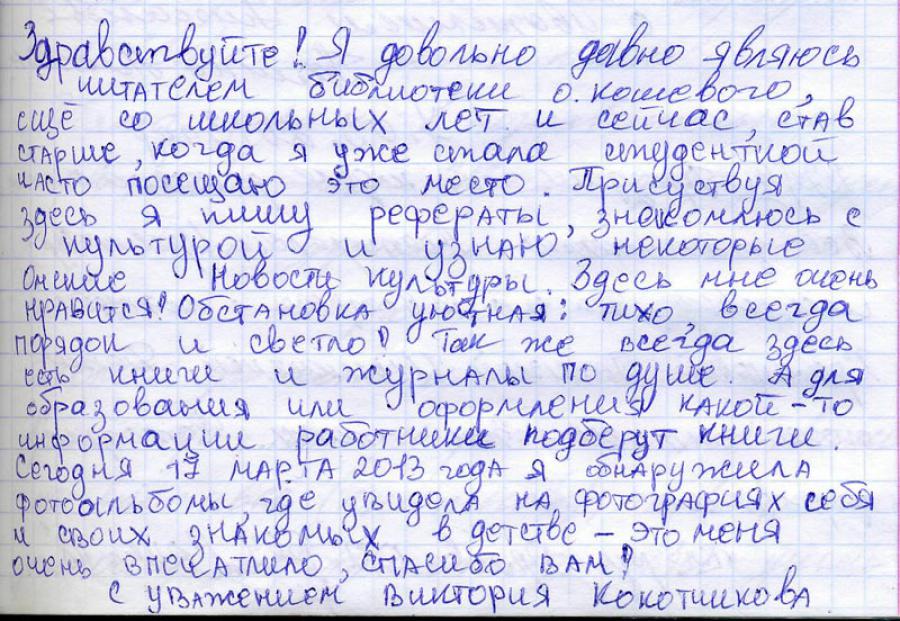 Здравствуйте! Я довольно давно являюсь
читателем библиотеки О. Кошевого,
ещё со школьных лет. И сейчас, став
старше, когда я уже стала студенткой
часто посещаю это место. Присуствуя
здесь я пишу рефераты, знакомлюсь с
культурой и узнаю некоторые
новости культуры. Здесь мне очень
нравится! Обстановка уютная: тихо, всегда
порядок и светло! Так же всегда здесь
есть книги и журналы по душе. А для
образования или оформления какой-то
информации работники подберут книги.
Сегодня 17 марта 2013 года я обнаружила
фотоальбомы, где увидела на фотографиях себя
и своих знакомых в детстве - это меня
очень впечатлило, спасибо вам!
С уважением Виктория Кокотчикова